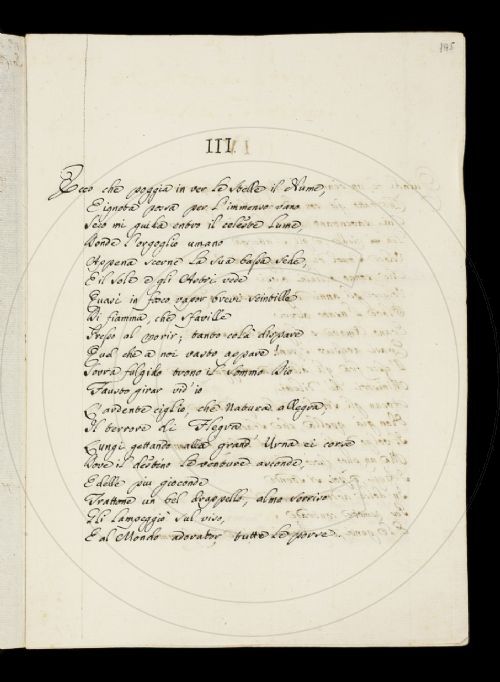 195
III.
Ecco che poggia in ver le stelle il Nume,
E ignota possa per l'immenso vano
Seco mi guida entro il celeste lume,
Donde l'orgoglio umano
Appena scerne la sua bassa sede,
E il sole e gli Astri vede
Quasi in fosco vapor brevi scintille
Di fiamma, che sfaville
Presso al morir; tanto colà dispare
Quel che a noi vasto appare!
Sovra fulgido trono il Sommo Dio
Fausto girar vid'io
L'ardente ciglio, che Natura allegra;
Il terrore di Flegra
Lungi gettando alla grand' Urna ei corse
Dove il destino le venture asconde,
E delle più gioconde
Trattone un bel drappello, almo sorriso
Gli lampeggiò sul viso,
E al Mondo adorator, tutte le porse.